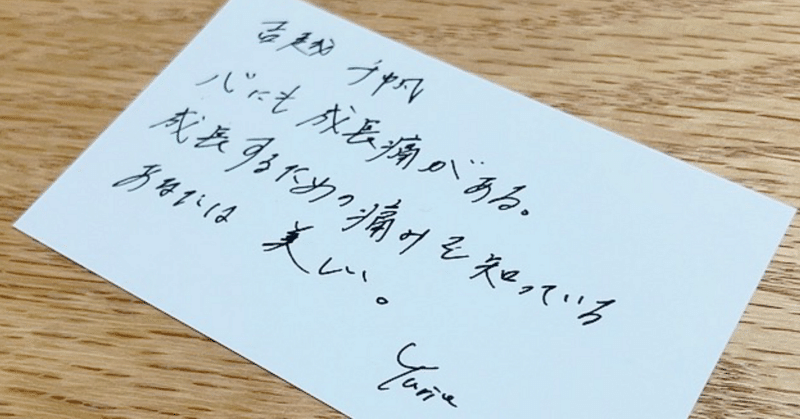 千帆
心にも成長痛がある。
成長するための痛みを知っている
あなたは 美しい。